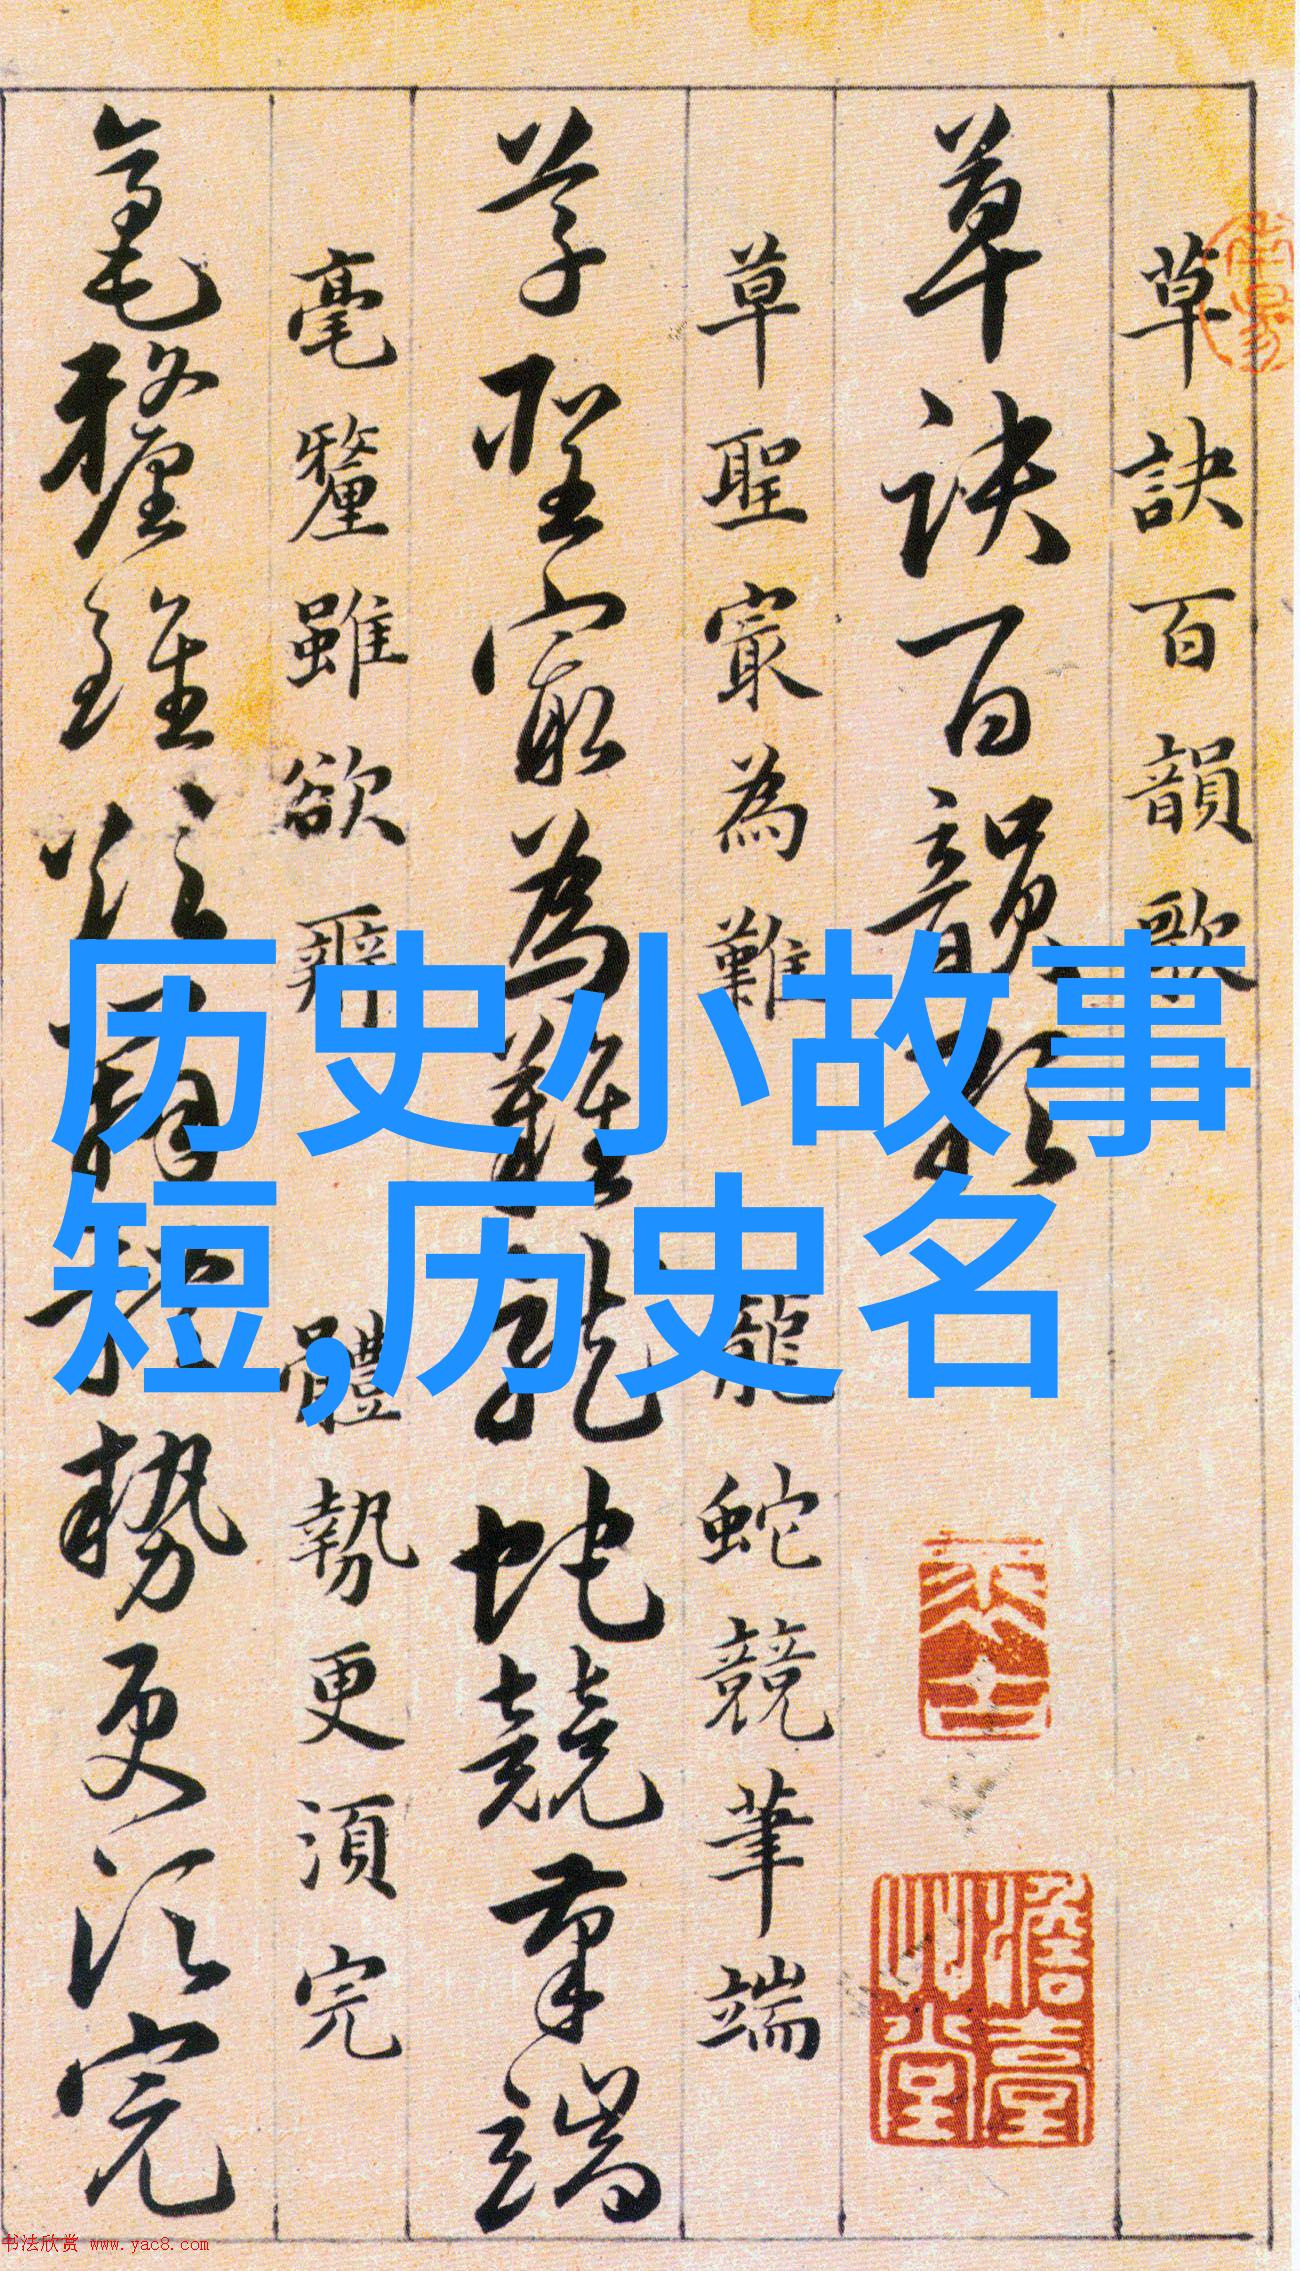 历史小故事
短,历史名
草訣百韻歌
草訣百韻歌
草聖㝡為難 龍蛇競筆端
草聖㝡為難龍蛇競筆端
毫釐雖欲辨 體勢更須完
毫釐雖欲辨體勢更須完
书法欣赏 www.yac8.com